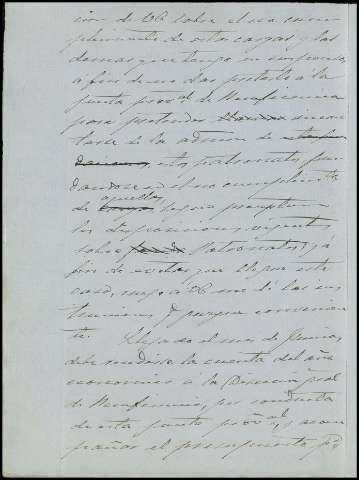 cion de V. E. sobre el no cum-
plimiento de estas cargas y las
demas que tengo en suspenso,
á fin de no dar pretesto á la
junta prov.al de Beneficencia
para pretender incau
tarse de la admon de
estos patronatos, fun
dandose en el no cumplimto
de aquellas segun preceptuan
las disposiciones vigentes
sobre Patronatos; y á
fin de evitar que llegue este
caso, ruego á V. E. me dé las ins
trucciones q. juzgue convenien
te. Llegado el mes de Junio,
debe rendirse la cuenta del año
economico á la Direccion gral
de Beneficencia, por conducto
de esta junta prov.al, y acom
pañar el presupuesto pa